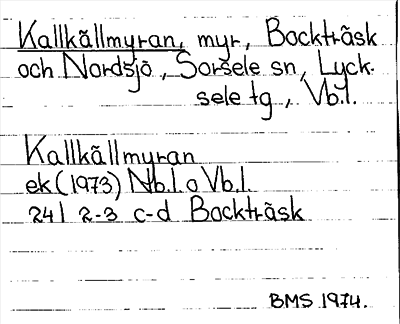 Kallkällmyran, myr, Bockträsk
och Nordsjö, Sorsele sn, Lyck-
sele tg, Vb.l.
Kallkällmyran
ek (1973) Nb.l. o Vb.l.
24I 2-3 c-d Bockträsk
BMS 1974.